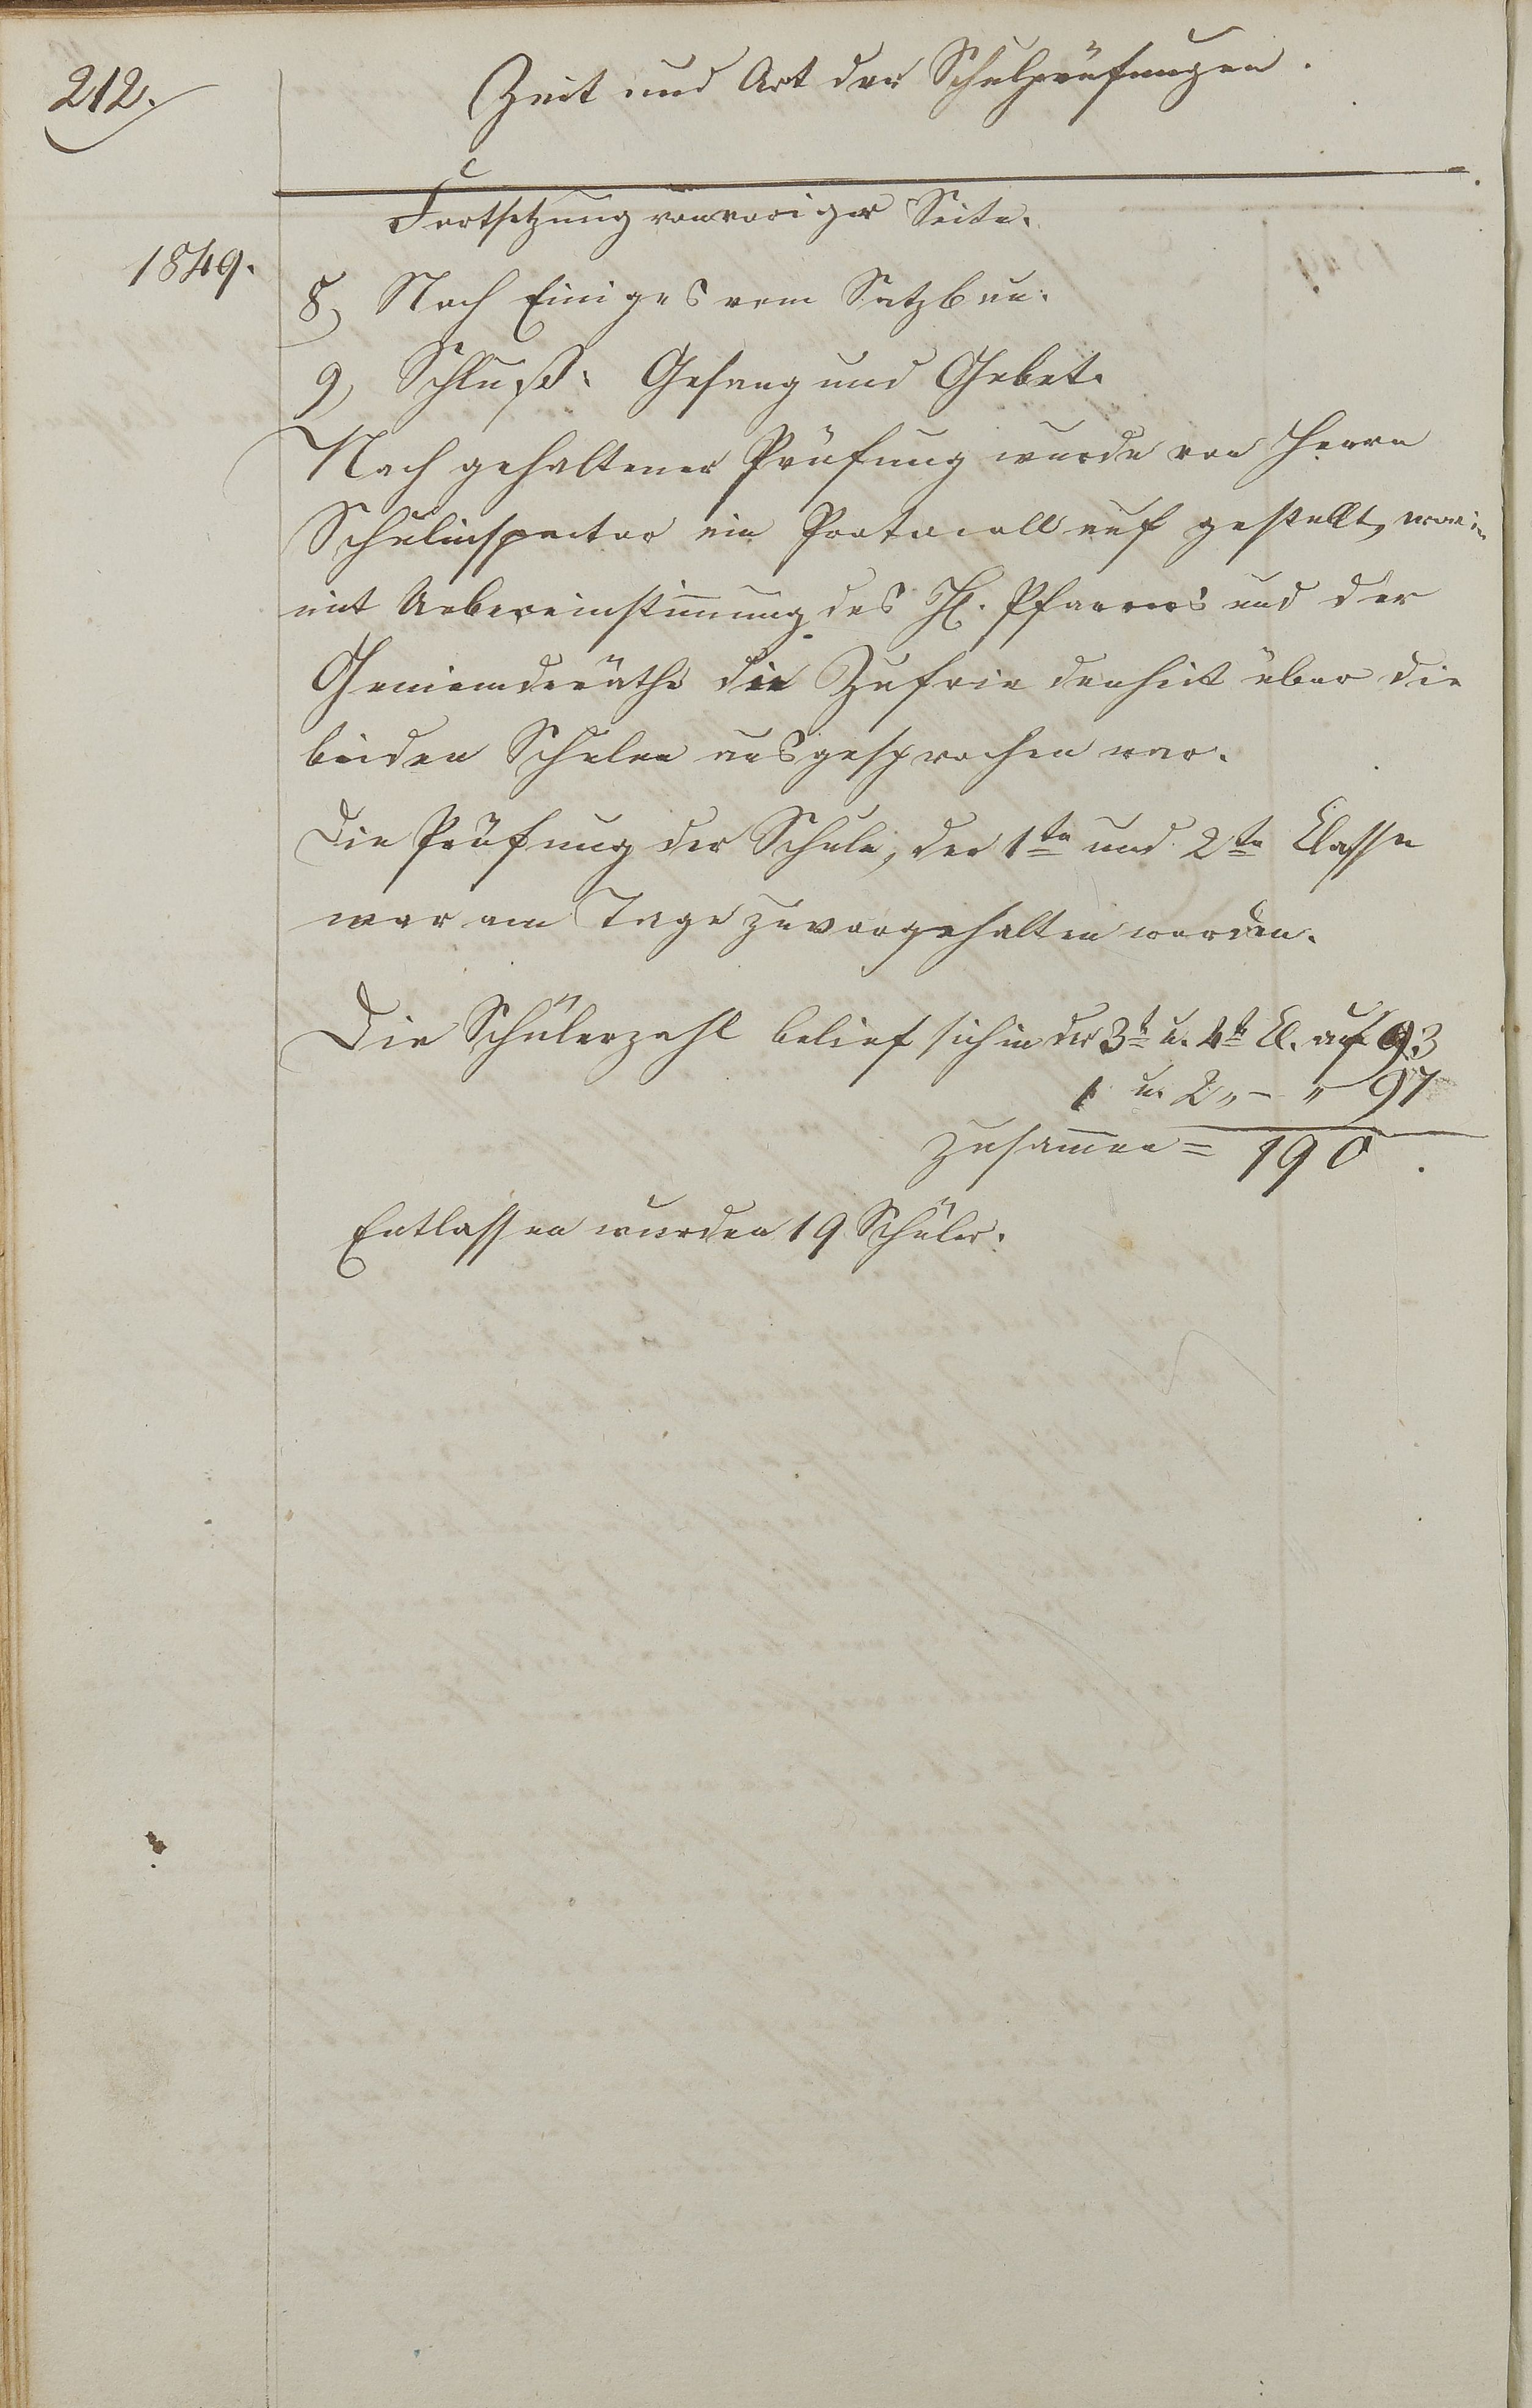 212.
Zeit und Art der Schulprüfungen.
Fortsetzung von voriger Seite.
1849.
8, Noch Einiges vom Satzbau.
9, Schluß: Gesang und Gebet.
Nach gehaltener Prüfung wurde von Herrn
Schulinspector ein Protocoll auf gestellt, worin
mit Uebereinstimung des H. Pfarrers und der
Gemeinderäthe die Zufriedenheit über die
beiden Schulen ausgesprochen war.
Die Prüfung der Schule, der 1te und 2te Classe
war am Tage zuvor gehalten worden.
Die Schülerzahl belief sich in der 3t u. 4t Cl. auf 93
1 u. 2 „ – „ 97
Zusamen = 190.
Entlassen wurden 19 Schüler.